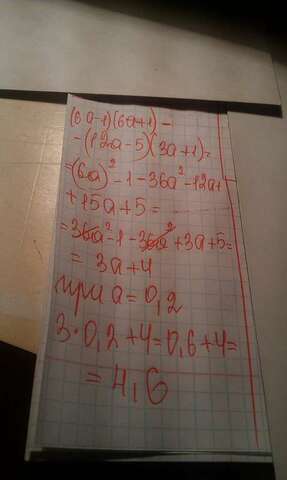 (6a-1)(6a+1)-
-(12a-5)(3a+1)=
=(6a)²-1-36a²-12a+
+15a+5=
=36a²-1-36a²+3a+5=
=3a+4
при a=0,2
3·0,2+4=0,6+4=
=4,6